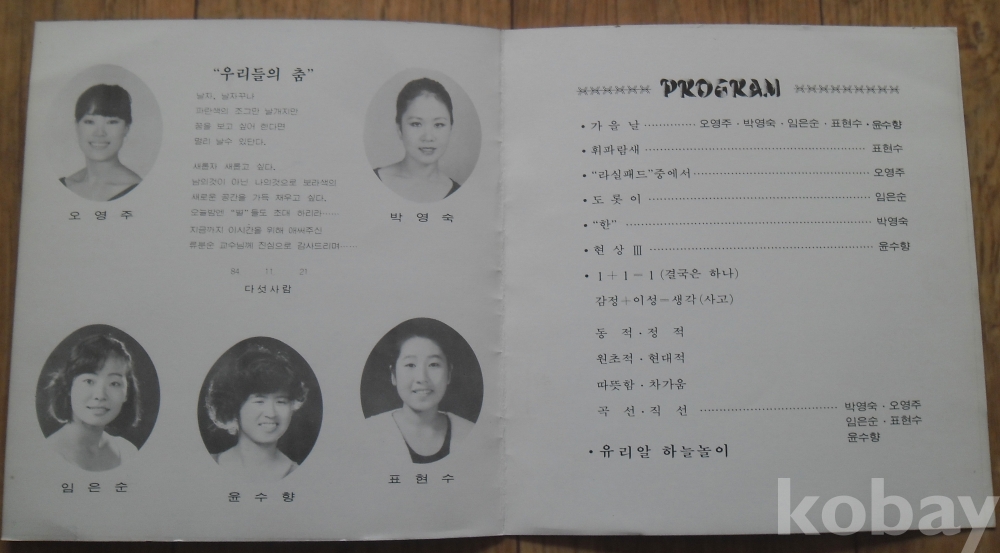 “우리들의 춤”
날자, 날자꾸나
파란색의 조그만 날개지만
꿈을 보고 싶어 한다면
멀리 날수 있단다.
새롭자 새롭고 싶다.
남의것이 아닌 나의것으로 보라색의
새로운 공간을 가득 채우고 싶다.
오늘밤엔 “별”들도 초대 하리라……
지금까지 이시간을 위해 애써주신
류분순 교수님께 진심으로 감사드리며……
84 11 21
다섯사람
오 영 주
박 영 숙
임 은 순
윤 수 향
표 현 수
PROGRAM
• 가 을 날 …………… 오영주 · 박영숙 · 임은순 · 표현수 · 윤수향
• 휘파람새 …………… 표현수
• “라실패드”중에서 …………… 오영주
• 도 롯 이 …………… 임은순
• “한” …………… 박영숙
• 현 상 Ⅲ …………… 윤수향
• 1+1=1 (결국은 하나)
감정+이성=생각 (사고)
동 적 · 정 적
원초적 · 현대적
따뜻함 · 차가움
곡 선 · 직 선 …………… 박영숙 · 오영주
임은순 · 표현수
윤수향
• 유리알 하늘놀이
kobay